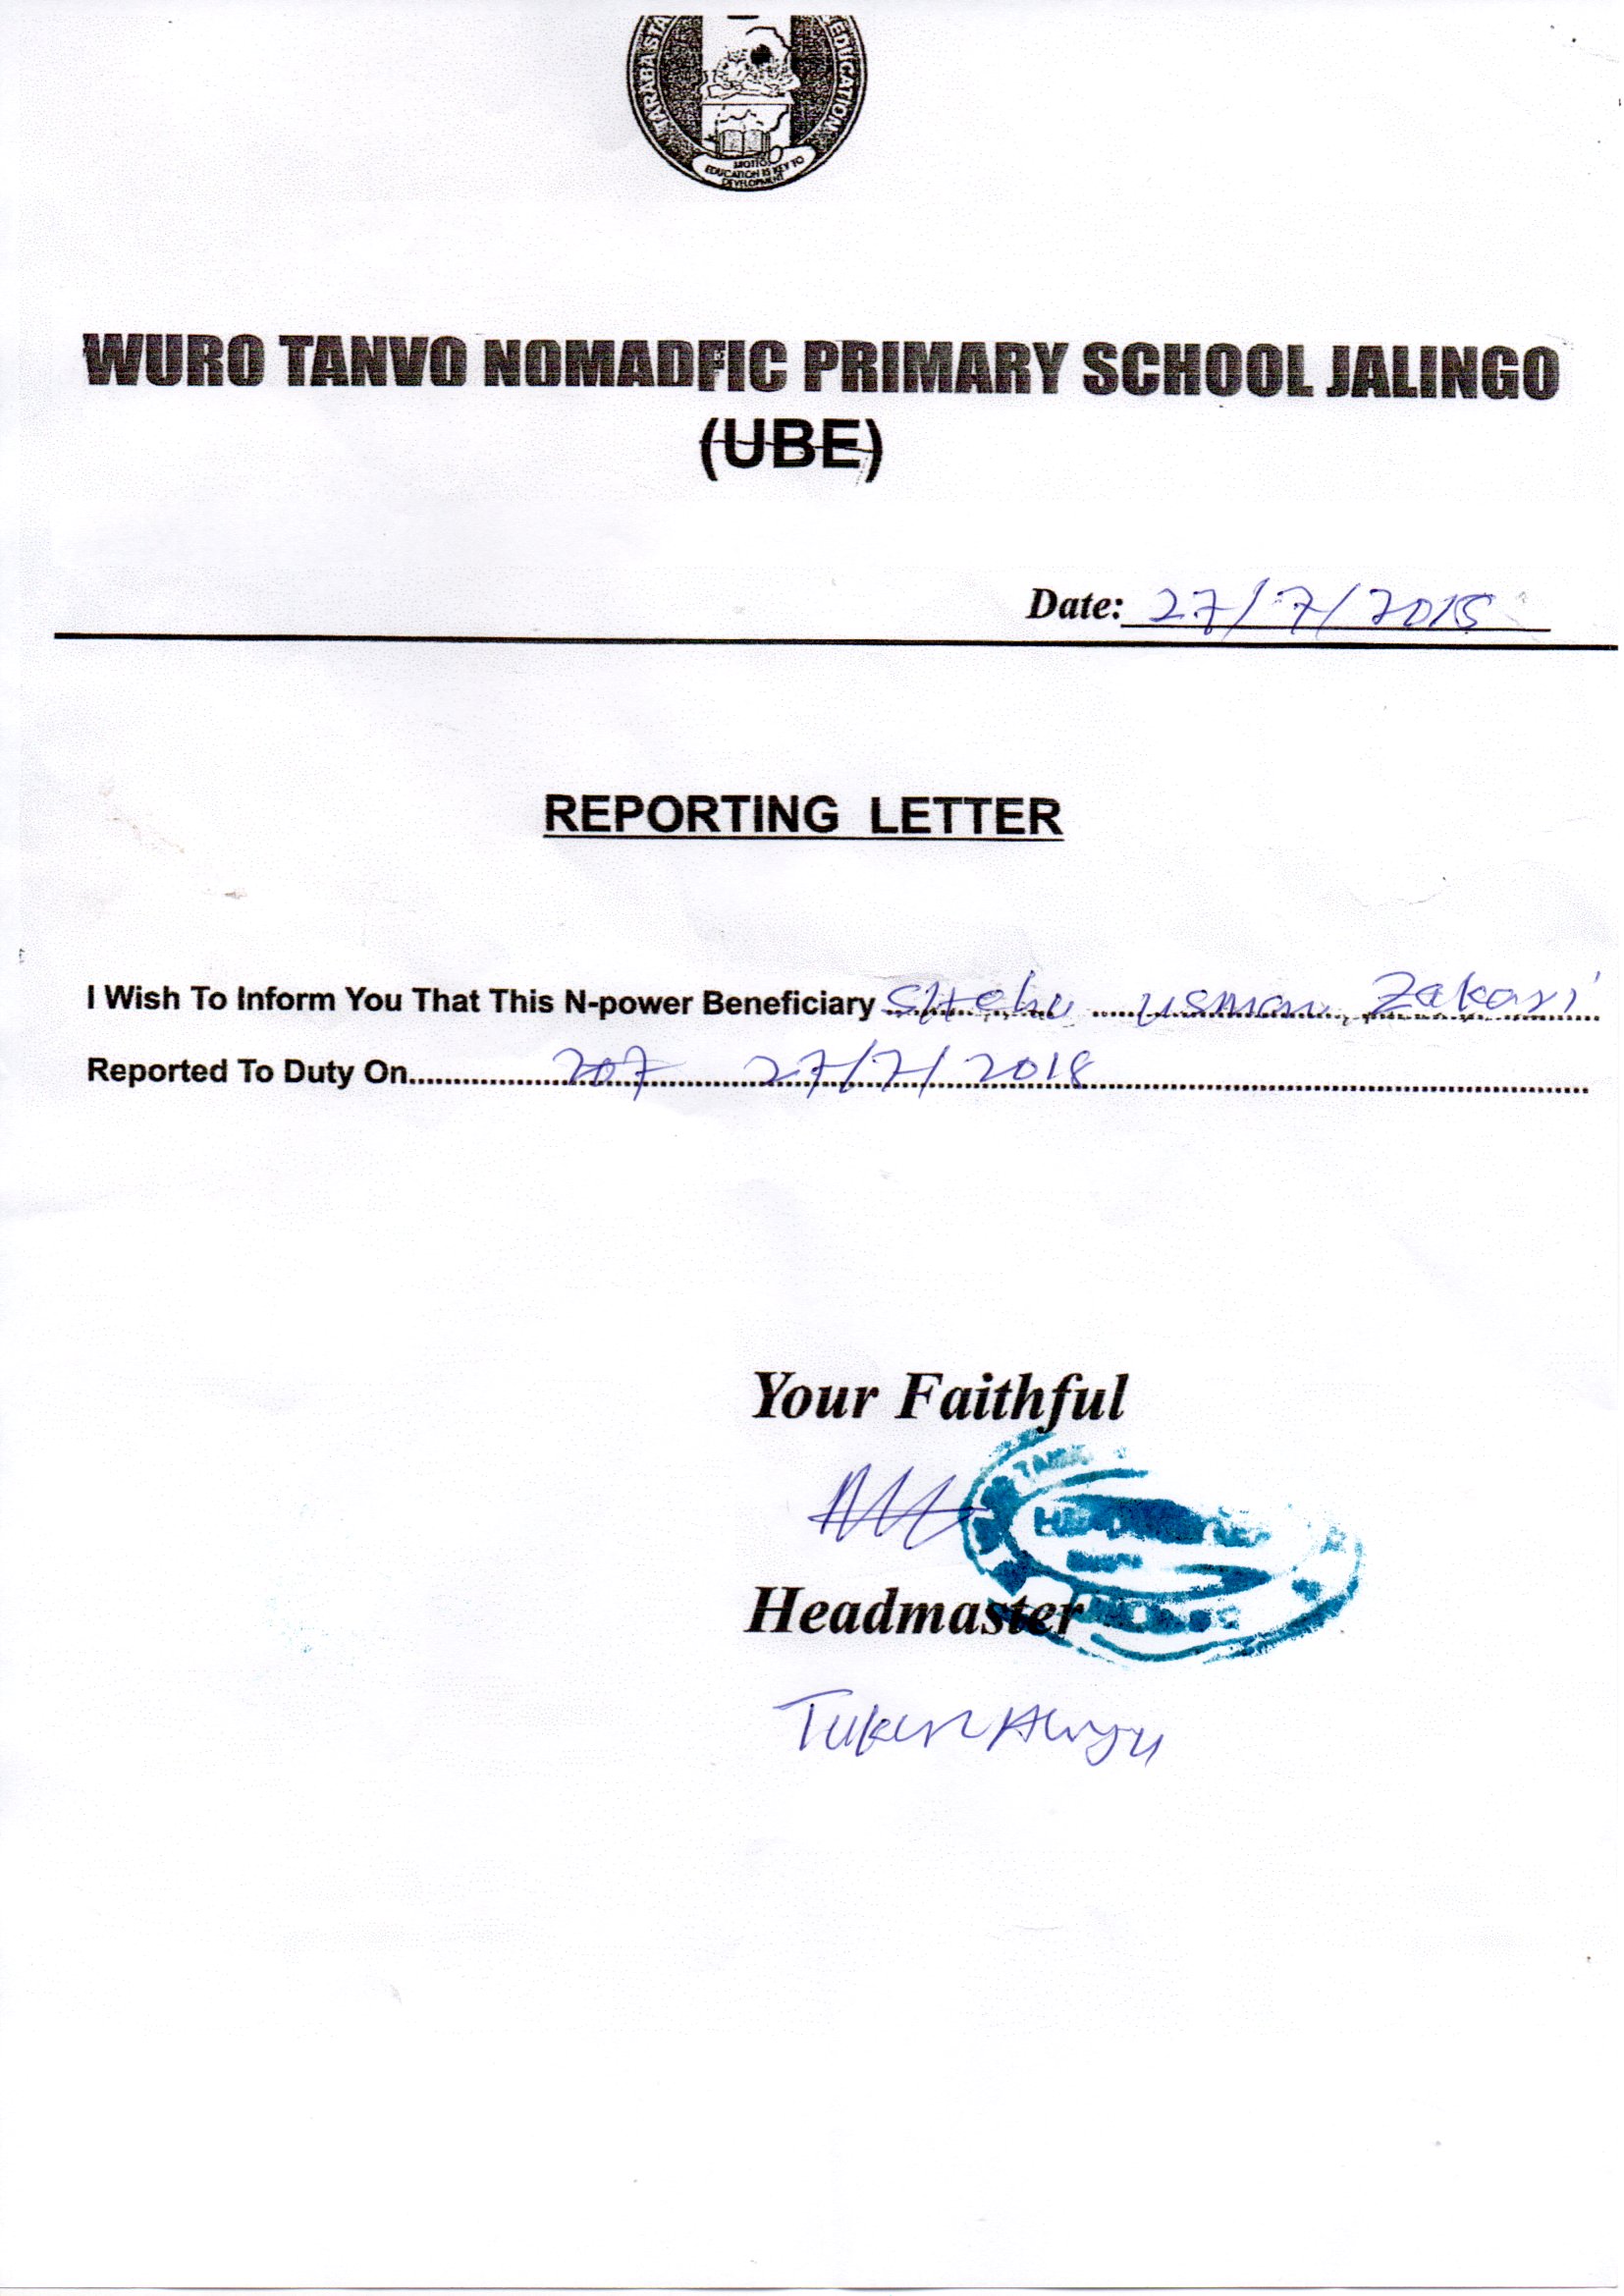 TARABA STA EDUCATION
MOTTO:
EDUCATION IS KEY TO
DEVELOPMENT
WURO TANVO NOMADFIC PRIMARY SCHOOL JALINGO
(UBE)
Date: 27/7/2018
REPORTING LETTER
I Wish To Inform You That This N-power Beneficiary Shehu Usman Zakari
Reported To Duty On 207 27/7/2018
Your Faithful
Headmaster